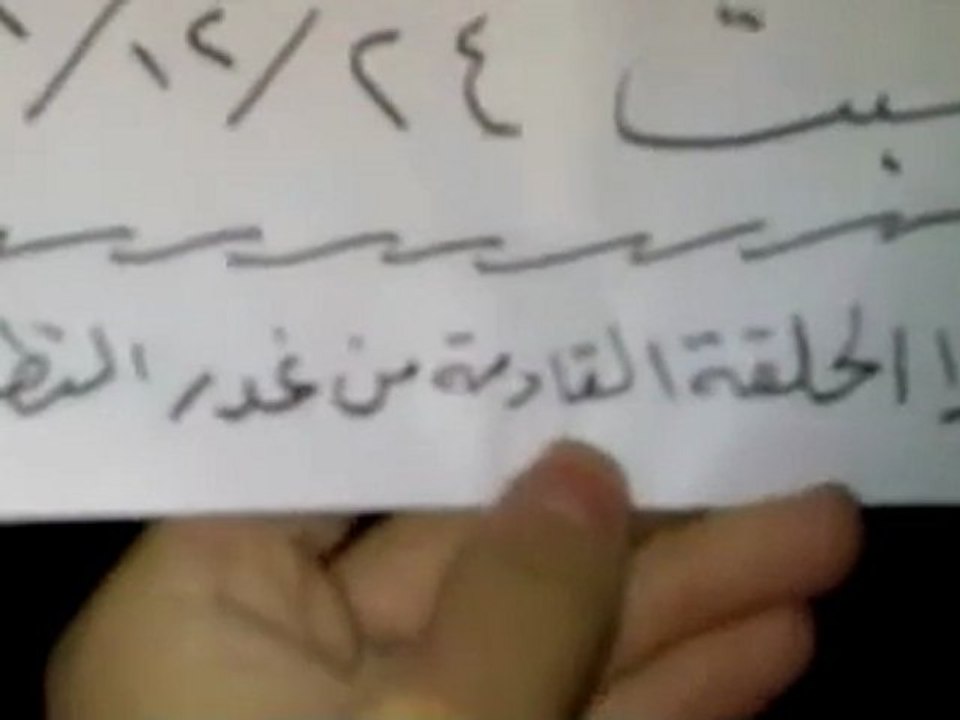 سبت ٢٤/١٢/
الحلقة القادمة من غدر